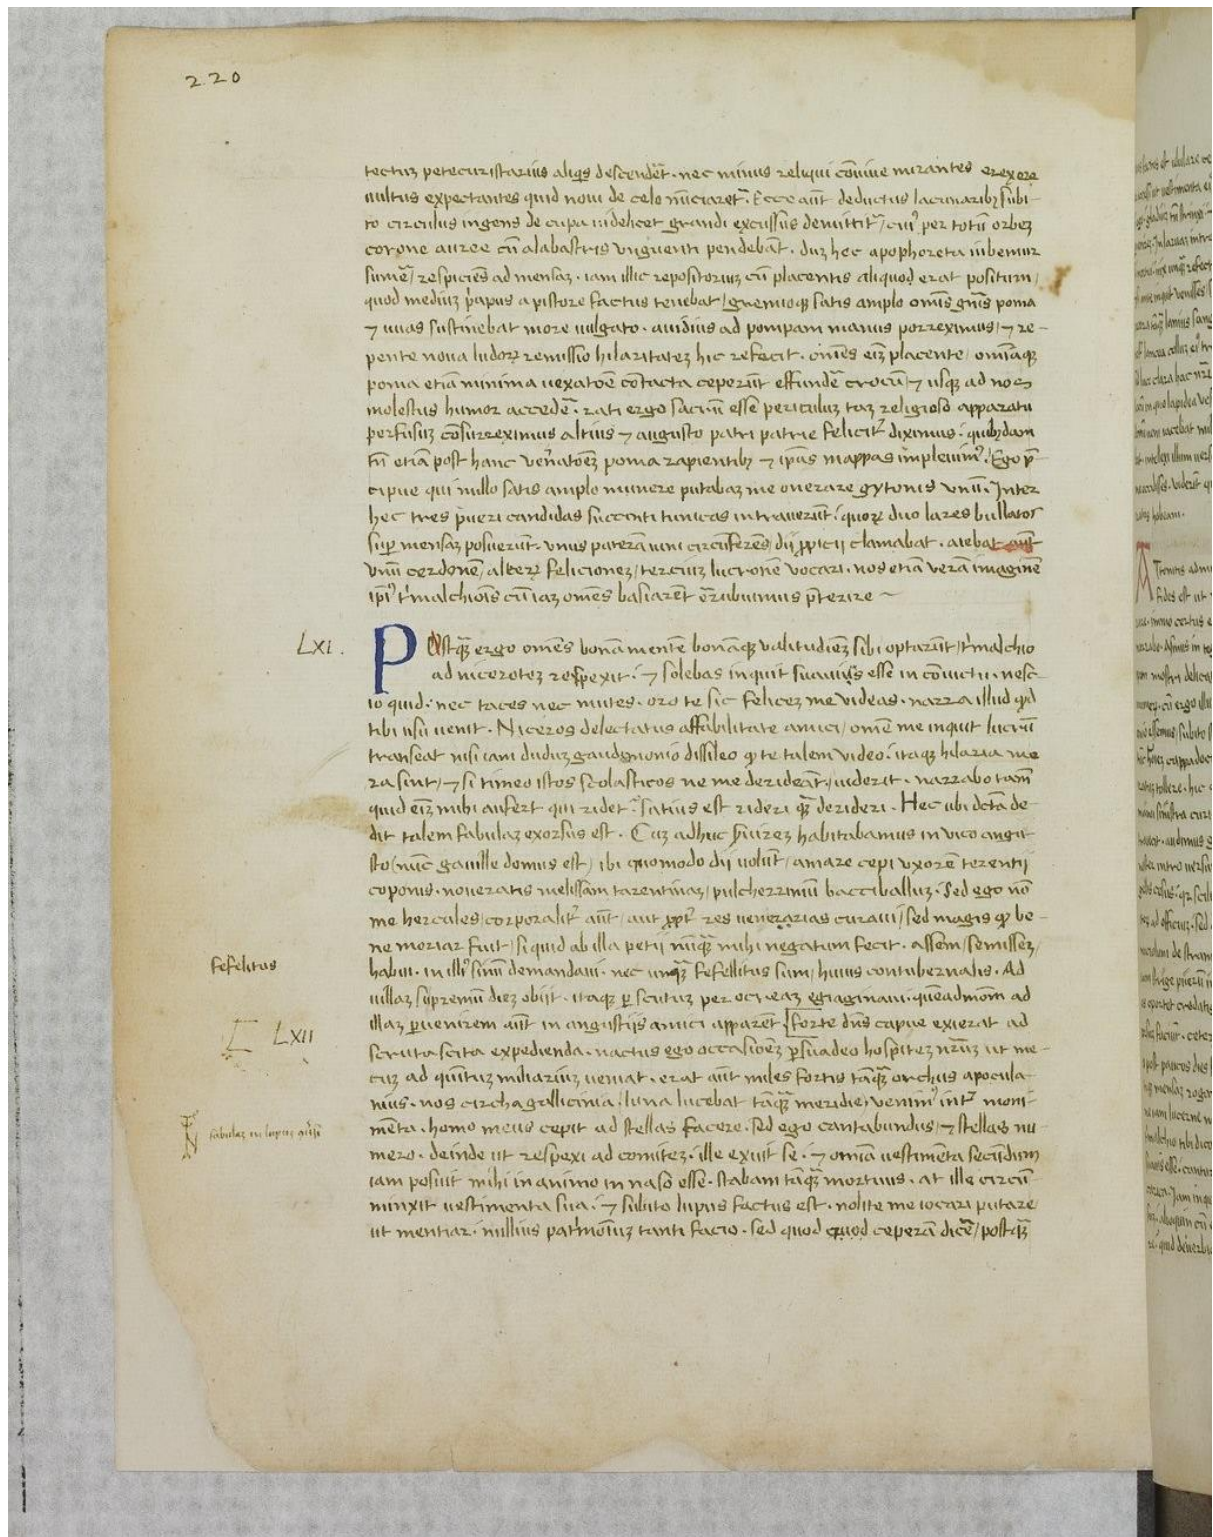 220
tectuz petecuristarius aliqis descenderet. nec minus reliqui conuiue mirantes erexere
uultus expectantes quid noui de celo nunciaret. Ecce aut deductus lacunaribz subi-
to circulus ingens de cupa uidelicet grandi excussus demittit, cui9 per totu orbez
corone auree cu alabastris unguenti pendebat. duz hec apophoreta iubemur
sumere / respicies ad mensaz. iam illic repositoriuz cu placentis aliquod erat positum /
quod mediuz priapus a pistore factus tenebat / gremioqz satis amplo omis gnis poma
7 uuas sustinebat more uulgato. auidius ad pompam manus porreximus / 7 re-
pente noua ludorz remissio hilaritatez hic refecit. omes eiz placente / omiaqz
poma etia minima uexatoe contacta ceperut effundere crocu / 7 usqz ad nos
molestus humor accedere. rati ergo sacru esse periculuz taz religioso apparatu
perfusuz consurreximus altius 7 augusto patri patrie feliciter diximus. quibzdam
tn etiam post hanc ueneratoez poma rapientibz 7 ipas mappas impleuim9. Ego pre
cipue qui nullo satis amplo munere putabaz me onerare gytonis unu. Inter
hec tres pueri candidas succinti tunicas intrauerut. quorz duo lares bullatos
super mensaz posuerut. unus patera uini circuferes / dii ppitii clamabat. aiebat aut
unu cerdone / alterz felicionez / terciuz lucrone uocari. nos etia uera imagine
ipi9 trimalchiois cu iaz omes basiaret erubuimus preterire ~
LXI.
Postqz ergo omes bona mente bonaqz ualitudiez sibi optarut / trimalchio
ad nicerotez respexit. 7 solebas inquit suauius esse in conuictu. nesc-
io quid. nec taces nec mutes. oro te sic felicez me uideas. narra illud qd
tibi usu uenit. Niceros delectatus affabilitate amici / ome me inquit lucru
transeat nisi iam duduz gaudimonio dissileo q te talem uideo. itaqz hilaria me
ra sint / 7 si timeo istos scolasticos ne me derideat / uiderit. narrabo tam
quid eiz mihi aufert qui ridet. satius est rideri qz derideri. Hec ubi dcta de-
dit talem fabulaz exorsus est. Cuz adhuc seruirez habitabamus in uico angu-
sto (nuc gauille domus est) ibi quomodo dii uolut / amare cepi uxore terentii
coponis. noueratis melissam tarentinaz / pulcherrimu bacciballuz. Sed ego no
me hercules / corporalit aut / aut ppt res uenerarias curaui / sed magis q be-
ne moriar fuit / si quid ab illa petii nuqz mihi negatum fecit. assem / semissez /
fefelitus
habui. in illi9 sinu demandaui. nec unqz fefellitus sum / huius contubernalis. Ad
uillaz supremu diez obiit. itaqz per scutuz per ocreaz egiaginaui. queadmom ad
illaz peruenirem aut in angustiis amici apparent. [forte dns capue exierat ad
LXII
scruta scita expedienda. nactus ego occasioez persuadeo hospitez nruz ut me-
cuz ad quintuz miliariuz ueniat. erat aut miles fortis taqz orchus apocula-
mus. nos circha gallicinia / luna lucebat taqz meridie / uenim9 inter moni-
fabulaz in lupis
menta. homo meus cepit ad stellas facere. sed ego cantabundus / 7 stellas nu
mero. deinde ut respexi ad comitez. ille exuit se. 7 omia uestimenta secundum
iam posuit mihi in animo in naso esse. stabam taqz mortuus. at ille circu
minxit uestimenta sua. 7 subito lupus factus est. nolite me iocari putare
ut mentiar. nullius patrimoniuz tanti facio. sed quod quod cepera dicere / postqz